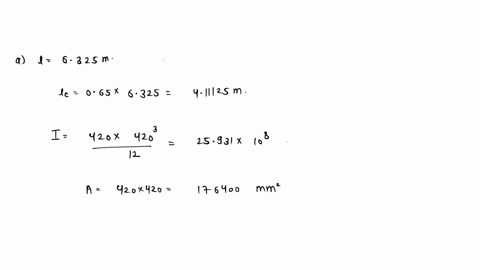 a) l = 6.325 m.
le = 0.65 × 6.325 = 4.11125 m.
I = 420 × 420³ / 12 = 25.931 × 10⁸
A = 420×420 = 176400 mm²